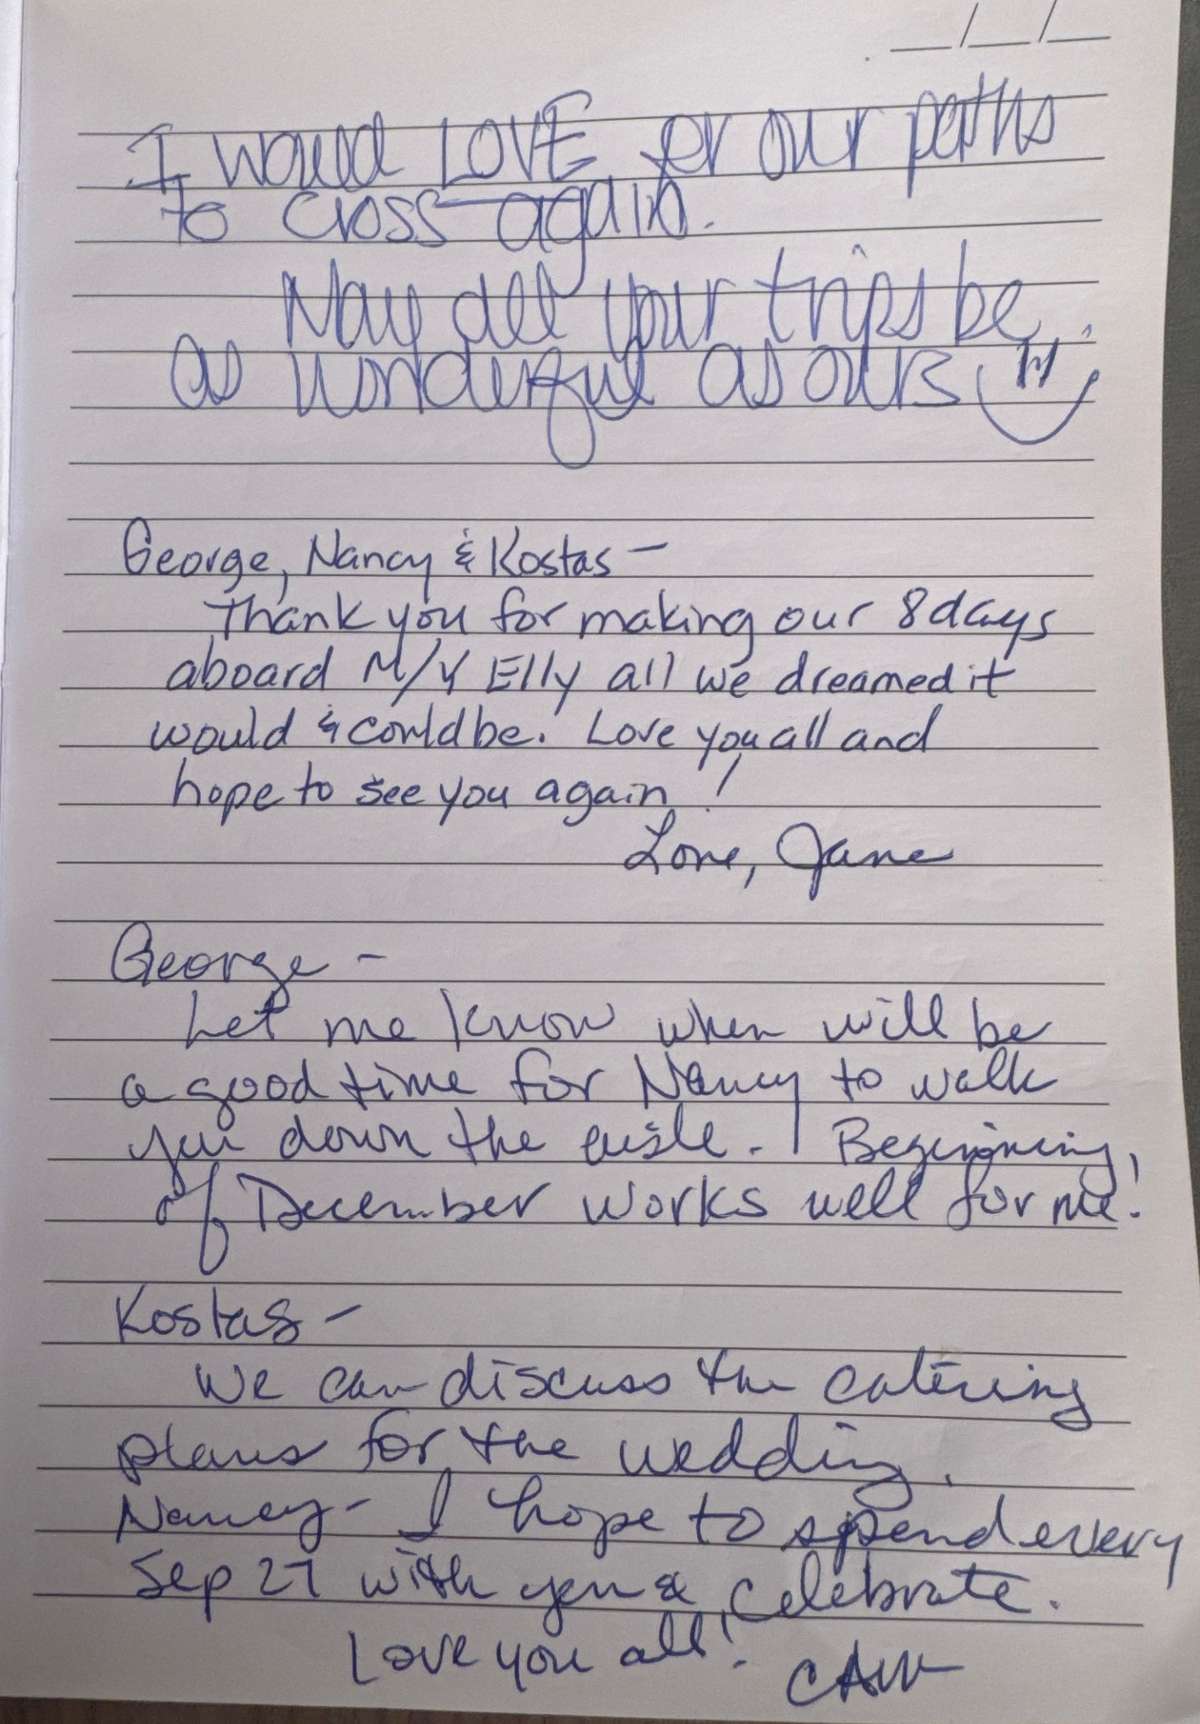 __/__/__
I would LOVE for our paths
to cross again.
May all your trips be
as wonderful as ours
George, Nancy & Kostas —
Thank you for making our 8 days
aboard M/Y Elly all we dreamed it
would & could be. Love you all and
hope to see you again!
Love, Jane
George —
Let me know when will be
a good time for Nancy to walk
you down the aisle. Beginning
of December works well for me!
Kostas —
We can discuss the catering
plans for the wedding.
Nancy - I hope to spend every
Sep 27 with you & celebrate.
Love you all!